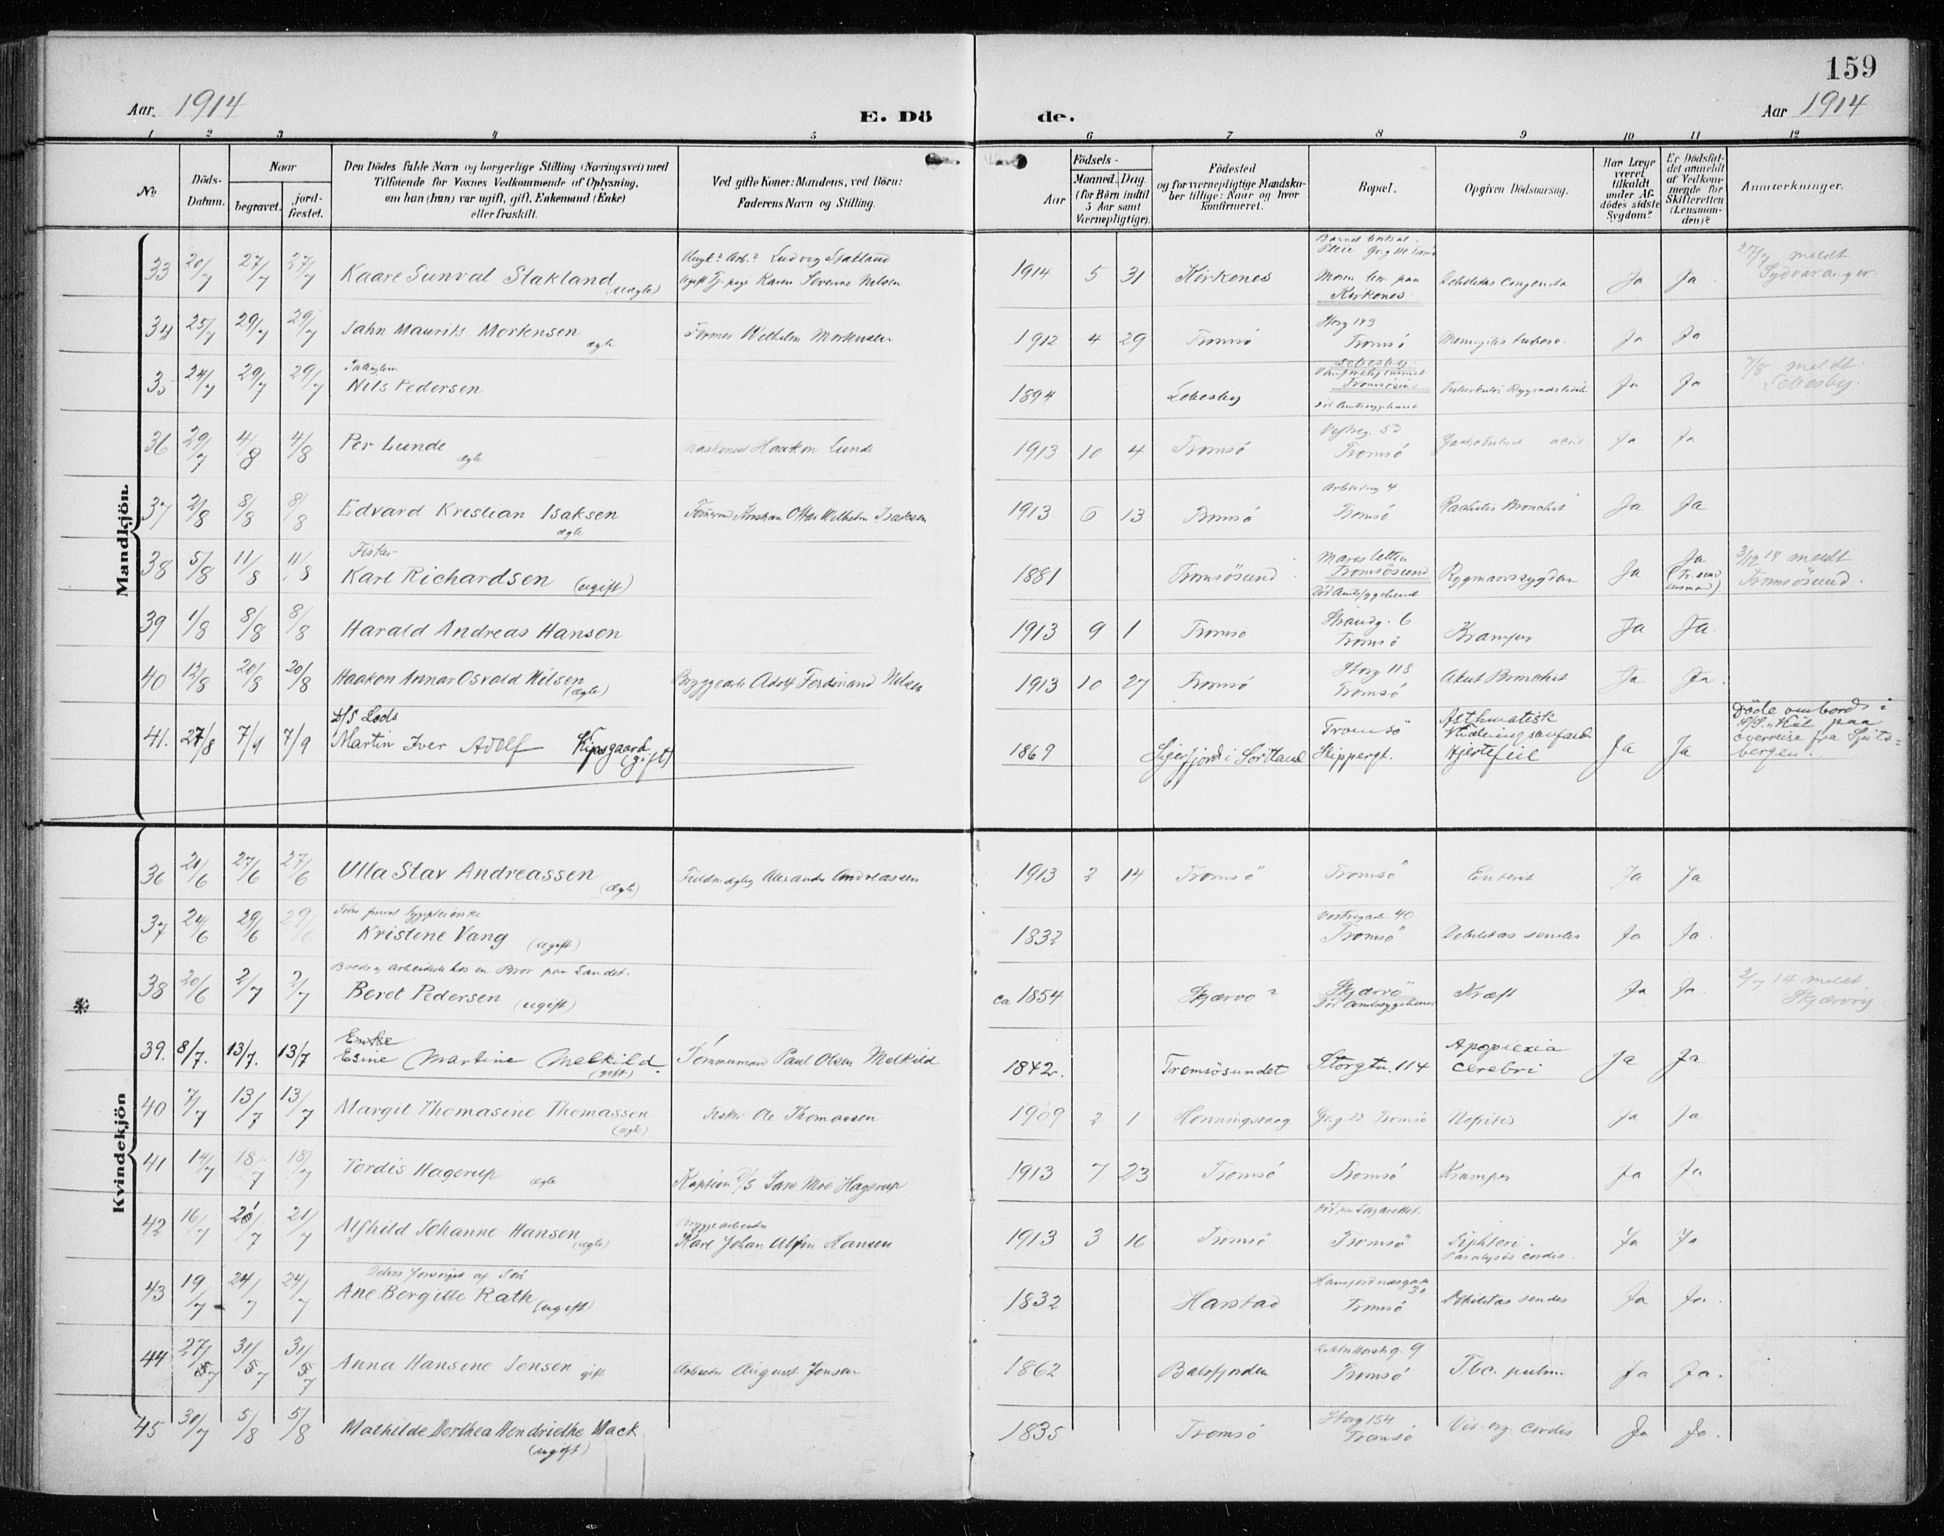 159
Aar. 1914
E. Dö
de.
Aar 1914
1 2 3 4 5 6 7 8 9 10 11 12
No
Döds-Datum.
Naar
begravet.
jord-fæstet.
Den Dödes fulde Navn og borgerlige Stilling (Næringsvei) med
Tilföiende for Voxnes Vedkommende af Oplysning,
om han (hun) var ugift, gift, Enkemand (Enke)
eller fraskilt.
Ved gifte Koner: Mandens, ved Börn:
Faderens Navn og Stilling.
Födsels-
Aar
Maaned. Dag.
(for Börn indtil
5 Aar samt
Værnepligtige).
Födested
og for værnepligtige Mandska-
ber tillige: Naar og hvor
konfirmeret.
Bopæl.
Opgiven Dödsaarsag.
Har Læge
været
tilkaldt
under Af-
dödes sidste
Sygdom?
Er Dödsfal-
det anmeldt
af Vedkom-
mende for
Skifteretten
(Lensman-
den)?
Anmærkninger.
Mandkjön.
33 20/7 27/7 27/7 Kaare Sunval Stakland (uægte) Ludvig Stakland Karen Severine Nilsen 1914 5 31 Kirkenes Kirkenes Debilitas congenita Ja Ja 27/7 meldt Sydvaranger
34 25/7 29/7 29/7 John Maurits Mortensen ægte Wilhelm Mortensen 1912 4 29 Tromsö Storg 183 Tromsö Ja Ja
35 24/7 29/7 29/7 Nils Pedersen 1894 Lebesby Lebesby Tromsösund Ja Ja 7/8 meldt Lebesby.
36 29/7 4/8 4/8 Per Lunde ægte Haakon Lunde 1913 10 4 Tromsö Vestreg. 53 Tromsö Ja Ja
37 2/8 8/8 8/8 Edvard Kristian Isaksen ægte Otto Wilhelm Isaksen 1913 6 13 Tromsö Tromsö Rachitis Bronchit Ja Ja
38 5/8 11/8 11/8 Fisker Karl Richardsen (ugift) 1881 Tromsösund Tromsösund Död Amtssygehuset Rygmarvssygdom Ja Ja (Tr.sund lensmand) meldt Tromsösund.
39 1/8 8/8 8/8 Harald Andreas Hansen 1913 9 1 Tromsö Strandg. 6 Tromsö Kramper Ja Ja.
40 12/8 20/8 20/8 Haakon Annar Osvald Nilsen (ægte) Bryggearb Adolf Ferdinand Nilsen 1913 10 27 Tromsö Storg 118 Tromsö Akut Bronchit Ja Ja.
41. 27/8 7/9 7/9 D/S Lods Martin Iver Adolf Kipsgaard (gift) 1869 Sigerfjord i Sortland Tromsö Skippergt. Asthmatisk Hjertefeil Ja Ja Döde ombord i paa overreise fra Spits=bergen.
Kvindekjön
36 21/6 27/6 27/6 Ulla Stav Andreassen (ægte) Alexander Andreassen 1913 2 14 Tromsö Tromsö Enterit Ja Ja
37 24/6 29/6 29/6 Kristine Vang (ugift) 1832 Vestregade 40. Tromsö Debilitas senilis Ja Ja.
38 20/6 2/7 2/7 arbeidede hos en Bror paa Landet. Beret Pedersen (ugift) ca 1854 Skjærvö? Skjærvö Död Amtssygehuset Kræft Ja Ja. 2/7 14 meldt Skjærvöy
39. 8/7. 13/7. 13/7 Enke Esine Martine Melkild. (gift) Tömmermand Paul Olsen Melkild 1842. Tromsösundet Storgtn. 114 Apoplexia cerebri Ja Ja.
40 7/7 13/7 13/7 Margit Thomasine Thomassen (ægte) Fisker Ole Thomassen 1909 2 1 Honningsvaag Tromsö Nefritis Ja Ja
41 14/7 18/7 18/7 Tordis Hagerup ægte Kaptein D/S Lars Moe Hagerup 1913 7 23 Tromsö Tromsö Kramper Ja Ja
42 16/7 21/7 21/7 Alfhild Johanne Hansen (ægte) Bryggearbeider Karl Johan Hansen 1913 3 16 Tromsö Död paa Lazarettet. Tromsö Diphteri. Paralysis cordis. Ja Ja
43 19/7 24/7 24/7 Delvis forsörget af Sön Ane Bergitte Rath (ugift) 1832 Harstad Tromsö Debilitas senilis Ja Ja.
44 27/7 31/7 31/7 Anna Hansine Jensen gift Arbeider August Jensen 1862 Balsfjorden 9 Tromsö Tbc. pulm. Ja Ja.
45 30/7 5/8 5/8 Mathilde Dorthea Hendrikke Mack (ugift) 1835 Tromsö Storg 154 Tromsö Vit. org. cordis Ja Ja.